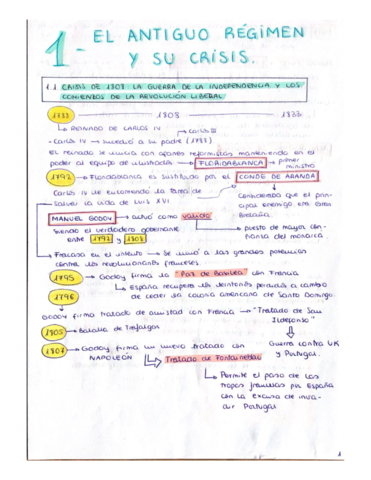 1- EL ANTIGUO RÉGIMEN
Y SU CRISIS.
1.1 CRISIS DE 1808: LA GUERRA DE LA INDEPENDENCIA Y LOS
COMIENZOS DE LA REVOLUCIÓN LIBERAL
1788 1808 1833
REINADO DE CARLOS IV
Carlos III
- Carlos IV sucedió a su padre (1788)
El reinado se inicia con afanes reformistas manteniendo en el
poder al equipo de ilustrados FLORIDABLANCA primer
ministro
1792 Floridablanca es sustituido por el CONDE DE ARANDA
Carlos IV le encomendó la tarea de
salvar la vida de Luis XVI
Consideraba que el prin-
cipal enemigo era Gran
Bretaña
MANUEL GODOY actuó como valido
siendo el verdadero gobernante
entre 1792 y 1808
puesto de mayor con-
fianza del monarca
Fracasa en el intento Se unió a las grandes potencias
contra los revolucionarios franceses
1795 Godoy firma la "Paz de Basilea" con Francia
España recupera los territorios perdidos a cambio
de ceder su colonia americana de Santo Domingo
1796
GODOY firma tratado de amistad con Francia "Tratado de San
Ildefonso"
1805 Batalla de Trafalgar
Guerra contra UK
y Portugal
1807 Godoy firma un nuevo tratado con
NAPOLEÓN Tratado de Fontainebleau
Permite el paso de las
tropas francesas por España
con la excusa de inva-
dir Portugal
1